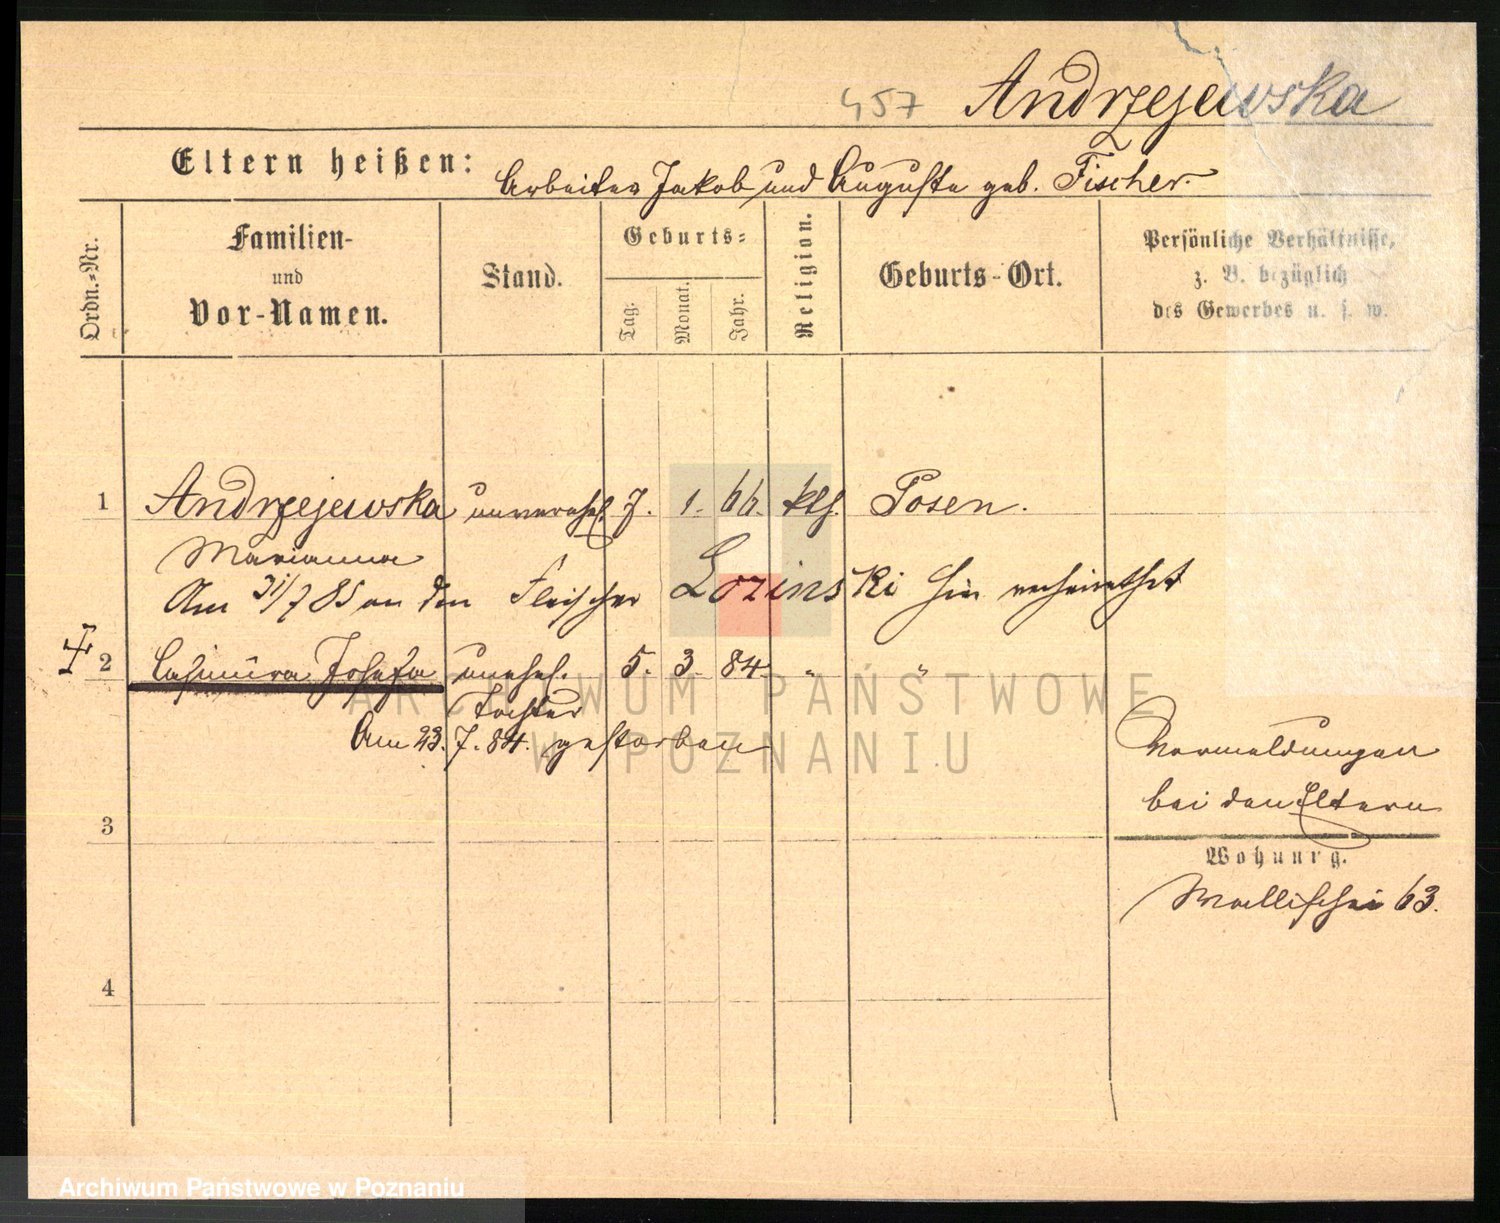 457 Andrzejewska
Eltern heißen: Arbeiter Jakob und Auguste geb. Fischer.
Ordn.-Nr.
Familien-
und
Vor-Namen.
Stand.
Geburts-
Tag:
Monat.
Jahr.
Religion.
Geburts-Ort.
Persönliche Verhältnisse,
z. B. bezüglich
des Gewerbes u. s. w.
1 Andrzejewska unverehel. 7. 1. 66. kth. Posen.
Marianna
Am 31/7 85 an den Fleischer Lozinski hier verheirathet
2 Casimira Josefa unehel. 5. 3. 84. " "
Tochter
Am 23. 7. 84. gestorben
Vermeldungen
bei den Eltern
3
Wohnung.
Wallischei 63.
4
ARCHIWUM PAŃSTWOWE
W POZNANIU
Archiwum Państwowe w Poznaniu